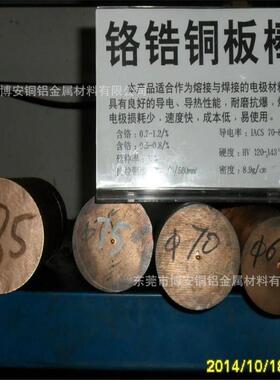 博安铜铝金属材料有限
铬锆铜板棒
本产品适合作为熔接与焊接的电极材料
具有良好的导电、导热性能,耐磨抗爆,
电极损耗少,速度快,成本低,易使用。
含铬:0.7-1.2/% 导电率:IACS 70-8
含锆:0.5-0.8/% 硬度:HV 120-143°
/560mm² 密度:8.9g/cm
85
φ75
φ70
φ6
东莞市博安铜铝金属材料有限公司
2014/10/19